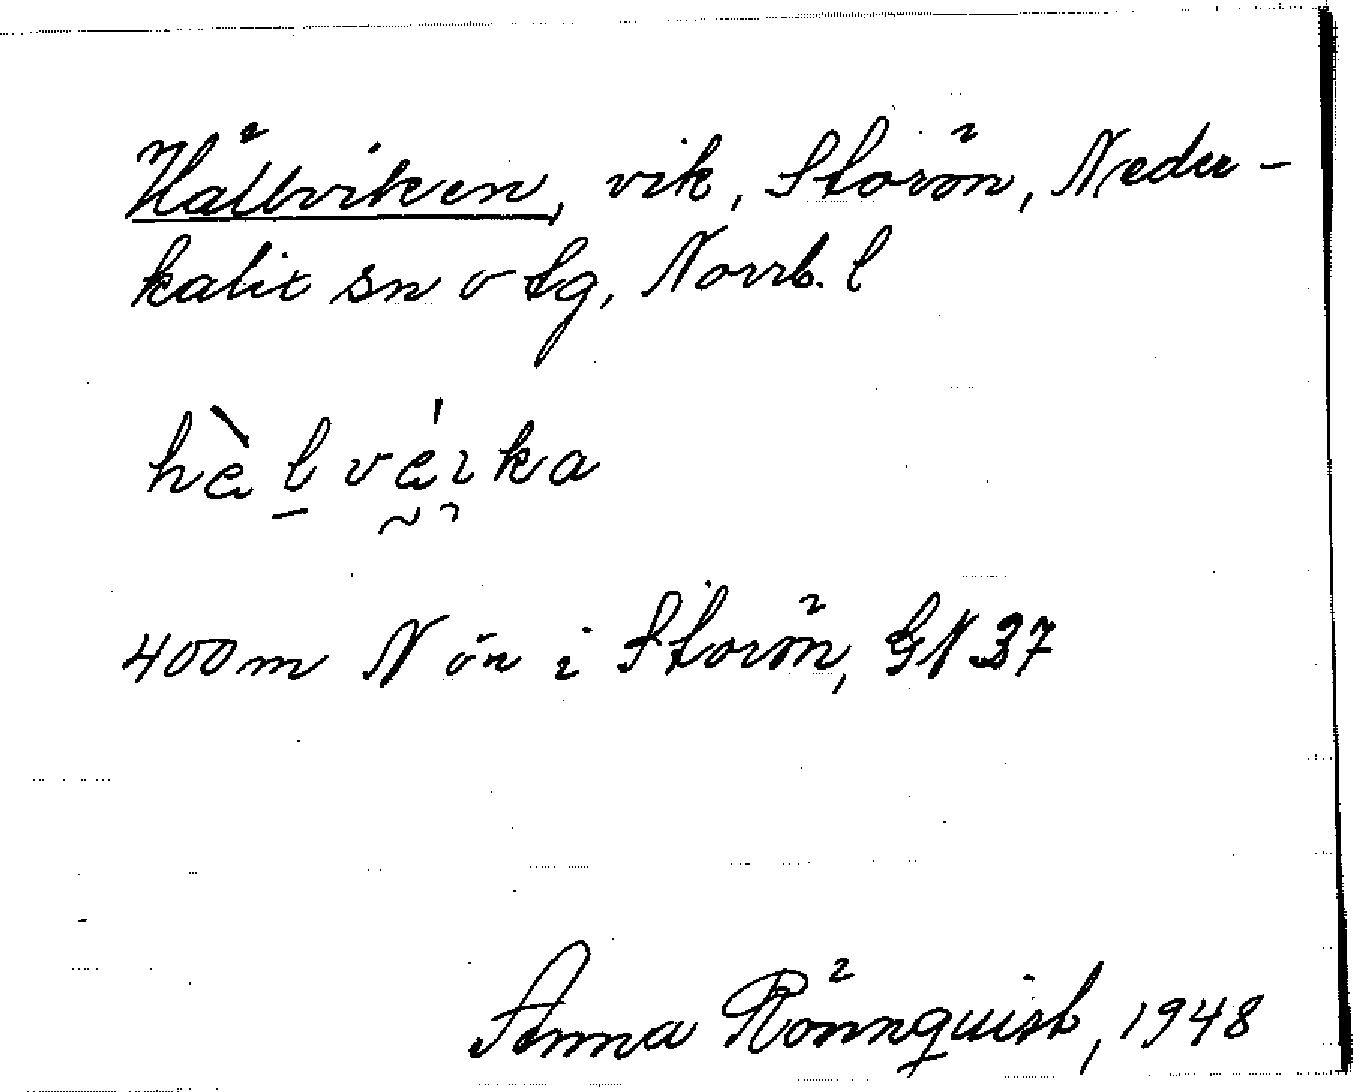 Hållviken, vik, Storön, Neder-
kalix sn o tg, Norrb. l
400 m N ön i Storön, GN 37
Anna Rönnquist, 1948